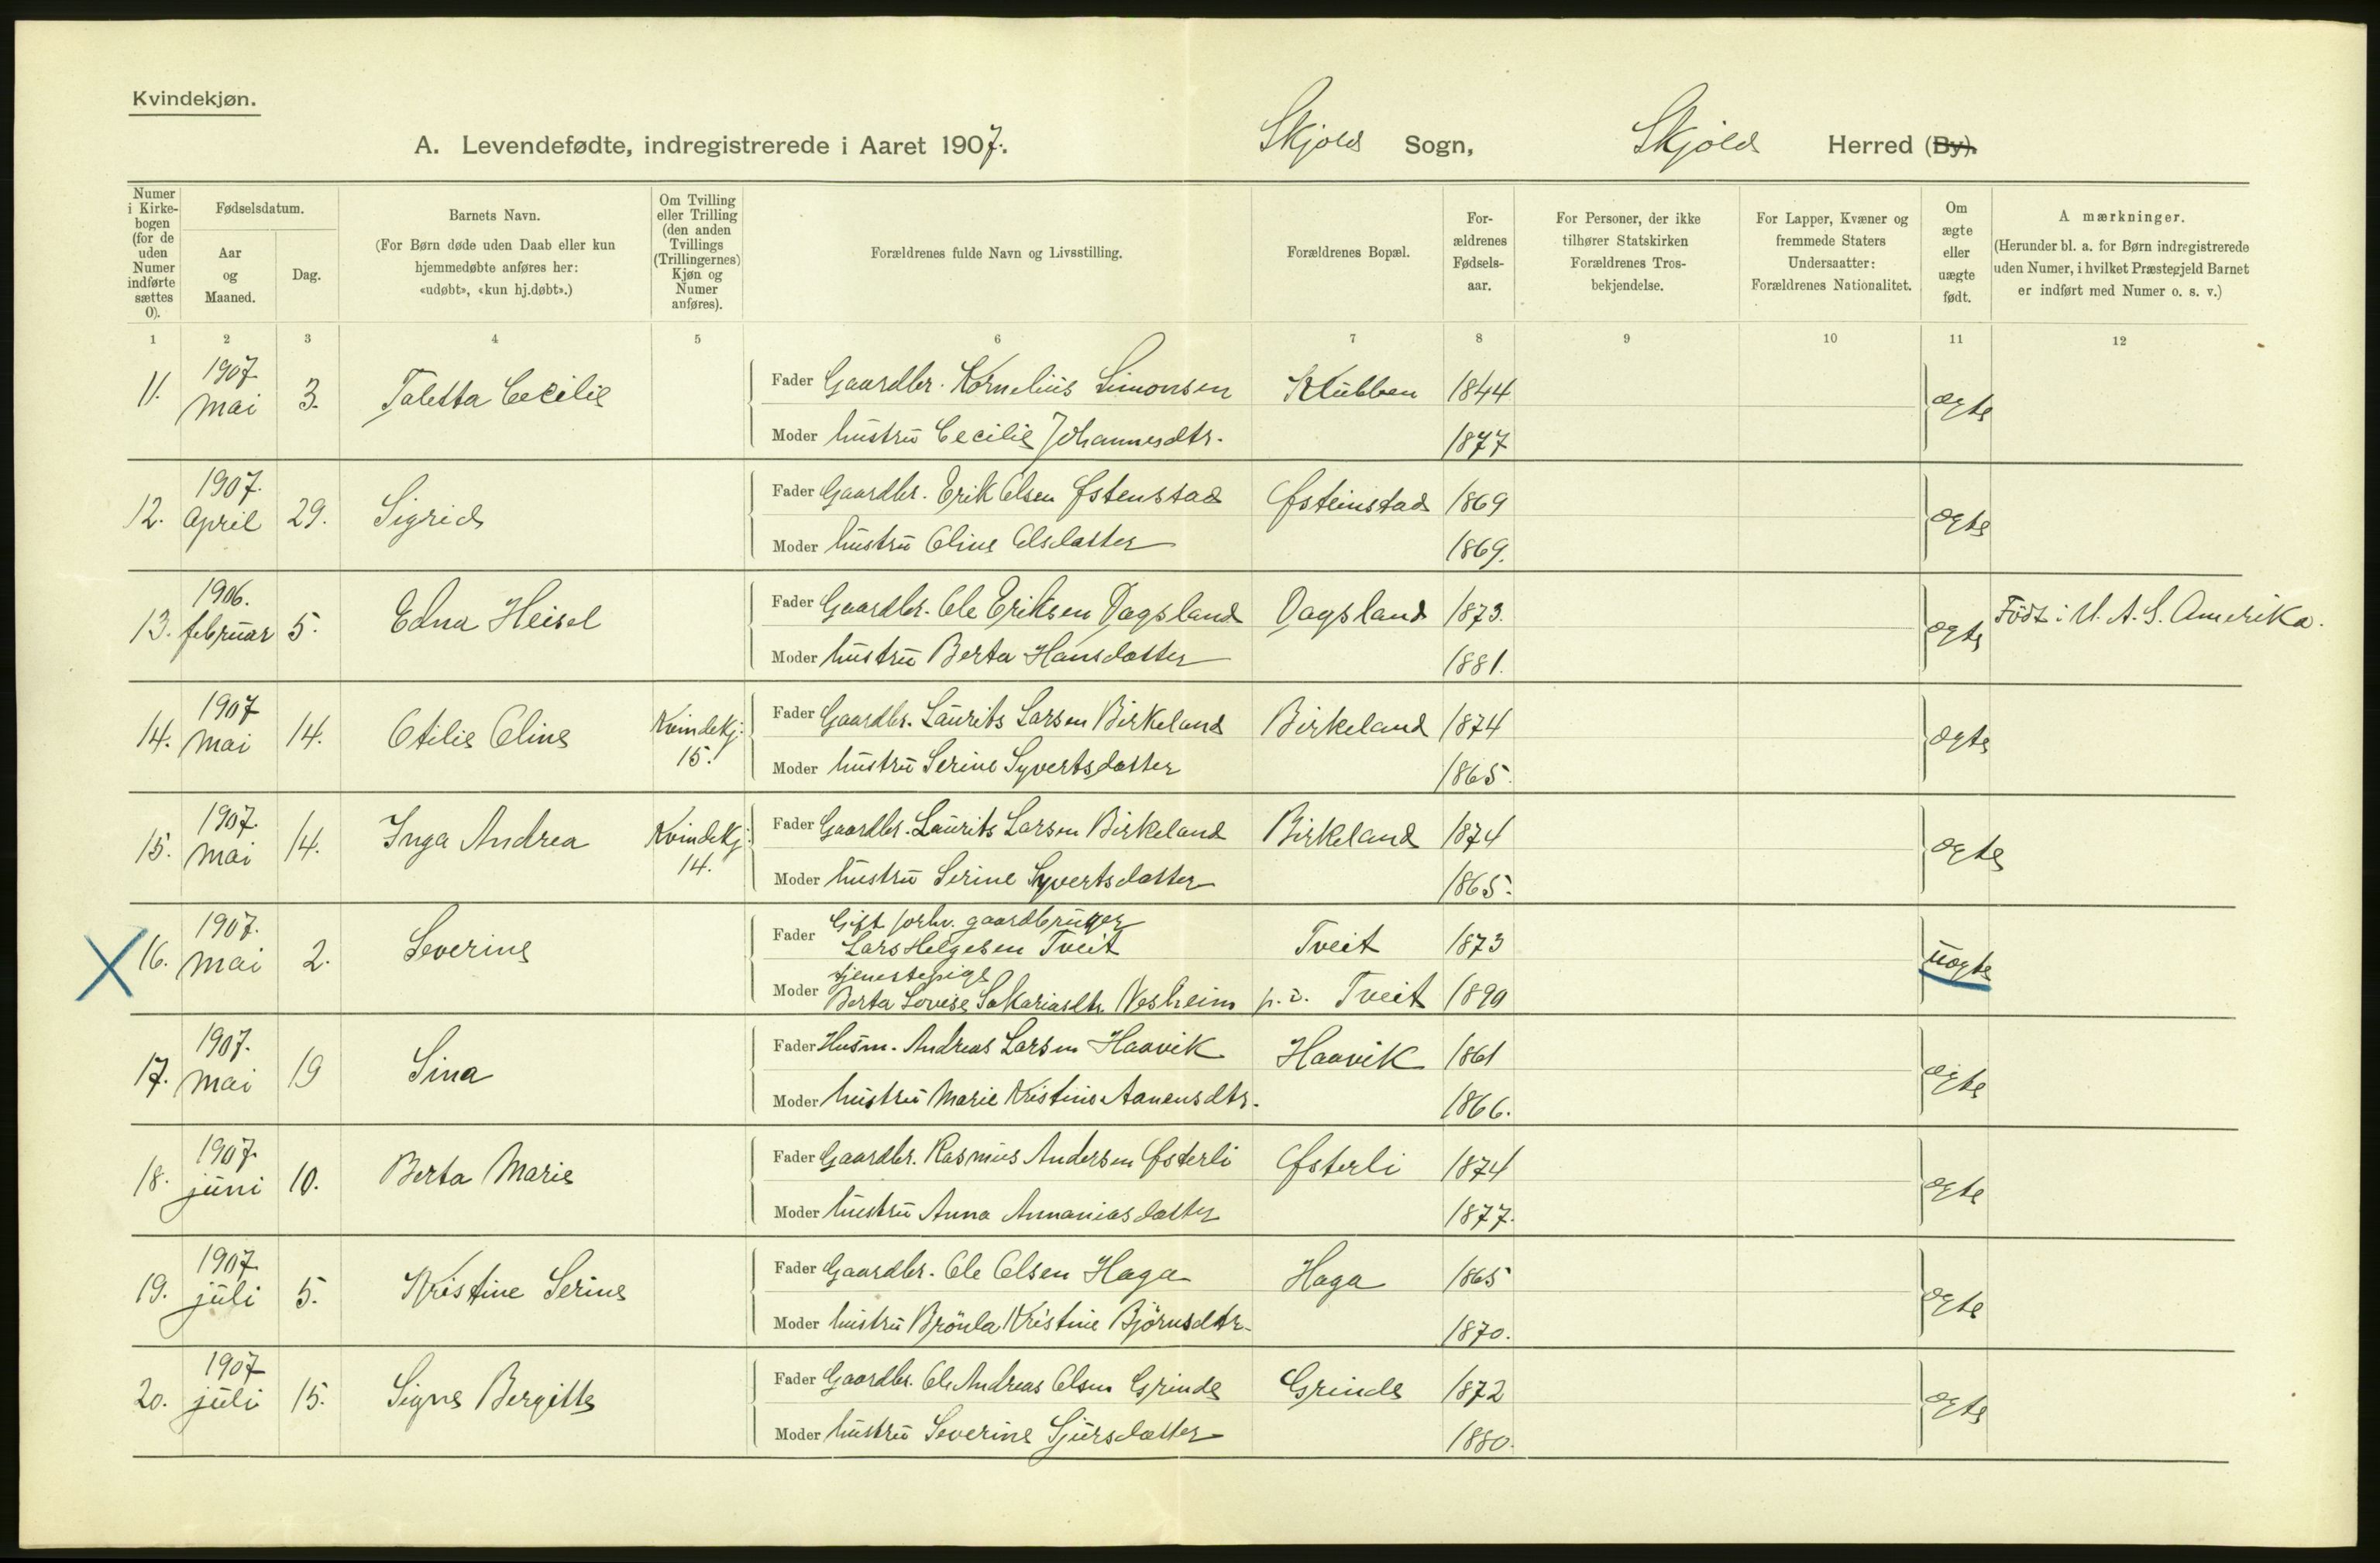 Kvindekjøn.
A. Levendefødte, indregistrerede i Aaret 1907. Skjold Sogn, Skjold Herred (By).
Numer i Kirke-bogen (for de uden Numer indførte sættes 0).
Fødselsdatum.
Aar og Maaned.
Dag.
Barnets Navn.
(For Børn døde uden Daab eller kun hjemmedøbte anføres her: «udøbt», «kun hj.døbt».)
Om Tvilling eller Trilling (den anden Tvillings (Trillingernes) Kjøn og Numer anføres).
Forældrenes fulde Navn og Livsstilling.
Forældrenes Bopæl.
For-ældrenes Fødsels-aar.
For Personer, der ikke tilhører Statskirken Forældrenes Tros-bekjendelse.
For Lapper, Kvæner og fremmede Staters Undersaatter: Forældrenes Nationalitet.
Om ægte eller uægte født.
A mærkninger.
(Herunder bl. a. for Børn indregistrerede uden Numer, i hvilket Præstegjeld Barnet er indført med Numer o. s. v.)
1 2 3 4 5 6 7 8 9 10 11 12
11. 1907 Mai 3. Taletta Cecilie Fader Gaardbr. Kornelius Simonsen Klubben 1844 ægte
Moder hustru Cecilie Johannesdtr. 1877
12. 1907. April 29. Sigrid Fader Gaardbr. Erik Olsen Østenstad Østeinstad 1869 ægte
Moder hustru Oline Olsdatter 1869.
13. 1906. februar 5. Edna Heisel Fader Gaardbr. Ole Eriksen Dagsland Dagsland 1873. ægte Födt i U. A. S. Amerika.
Moder hustru Berta Hansdatter 1881.
14. 1907 Mai 14. Otilie Oline Kvindekj. 15. Fader Gaardbr. Laurits Larsen Birkeland Birkeland 1874 ægte
Moder hustru Serine Syvertsdatter 1865.
15. 1907. Mai 14. Inga Andrea Kvindekj. 14. Fader Gaardbr. Laurits Larsen Birkeland Birkeland 1874 ægte
Moder hustru Serine Syvertsdatter 1865.
X 16. 1907. Mai 2. Severine Fader Gift forhv. gaardbruger
Lars Helgesen Tveit Tveit 1873 uægte
Moder tjenestepige
Berta Lovise Sakariasdtr. Nesheim p. t. Tveit 1890
17. 1907. Mai 19 Sina Fader Husm. Andreas Larsen Haavik Haavik 1861 ægte
Moder hustru Marie Kristine Aanensdtr. 1866.
18. 1907. juni 10. Berta Marie Fader Gaardbr. Rasmus Andersen Østerli Østerli 1874 ægte
Moder hustru Anna Annaniasdatter 1877.
19. 1907. juli 5. Kristine Serine Fader Gaardbr. Ole Olsen Haga Haga 1865 ægte
Moder hustru Brönla Kristine Björnsdtr. 1870.
20. 1907 juli 15. Signe Bergitte Fader Gaardbr. Ole Andreas Olsen Grinde Grinde 1872 ægte
Moder hustru Severine Sjursdatter 1880.